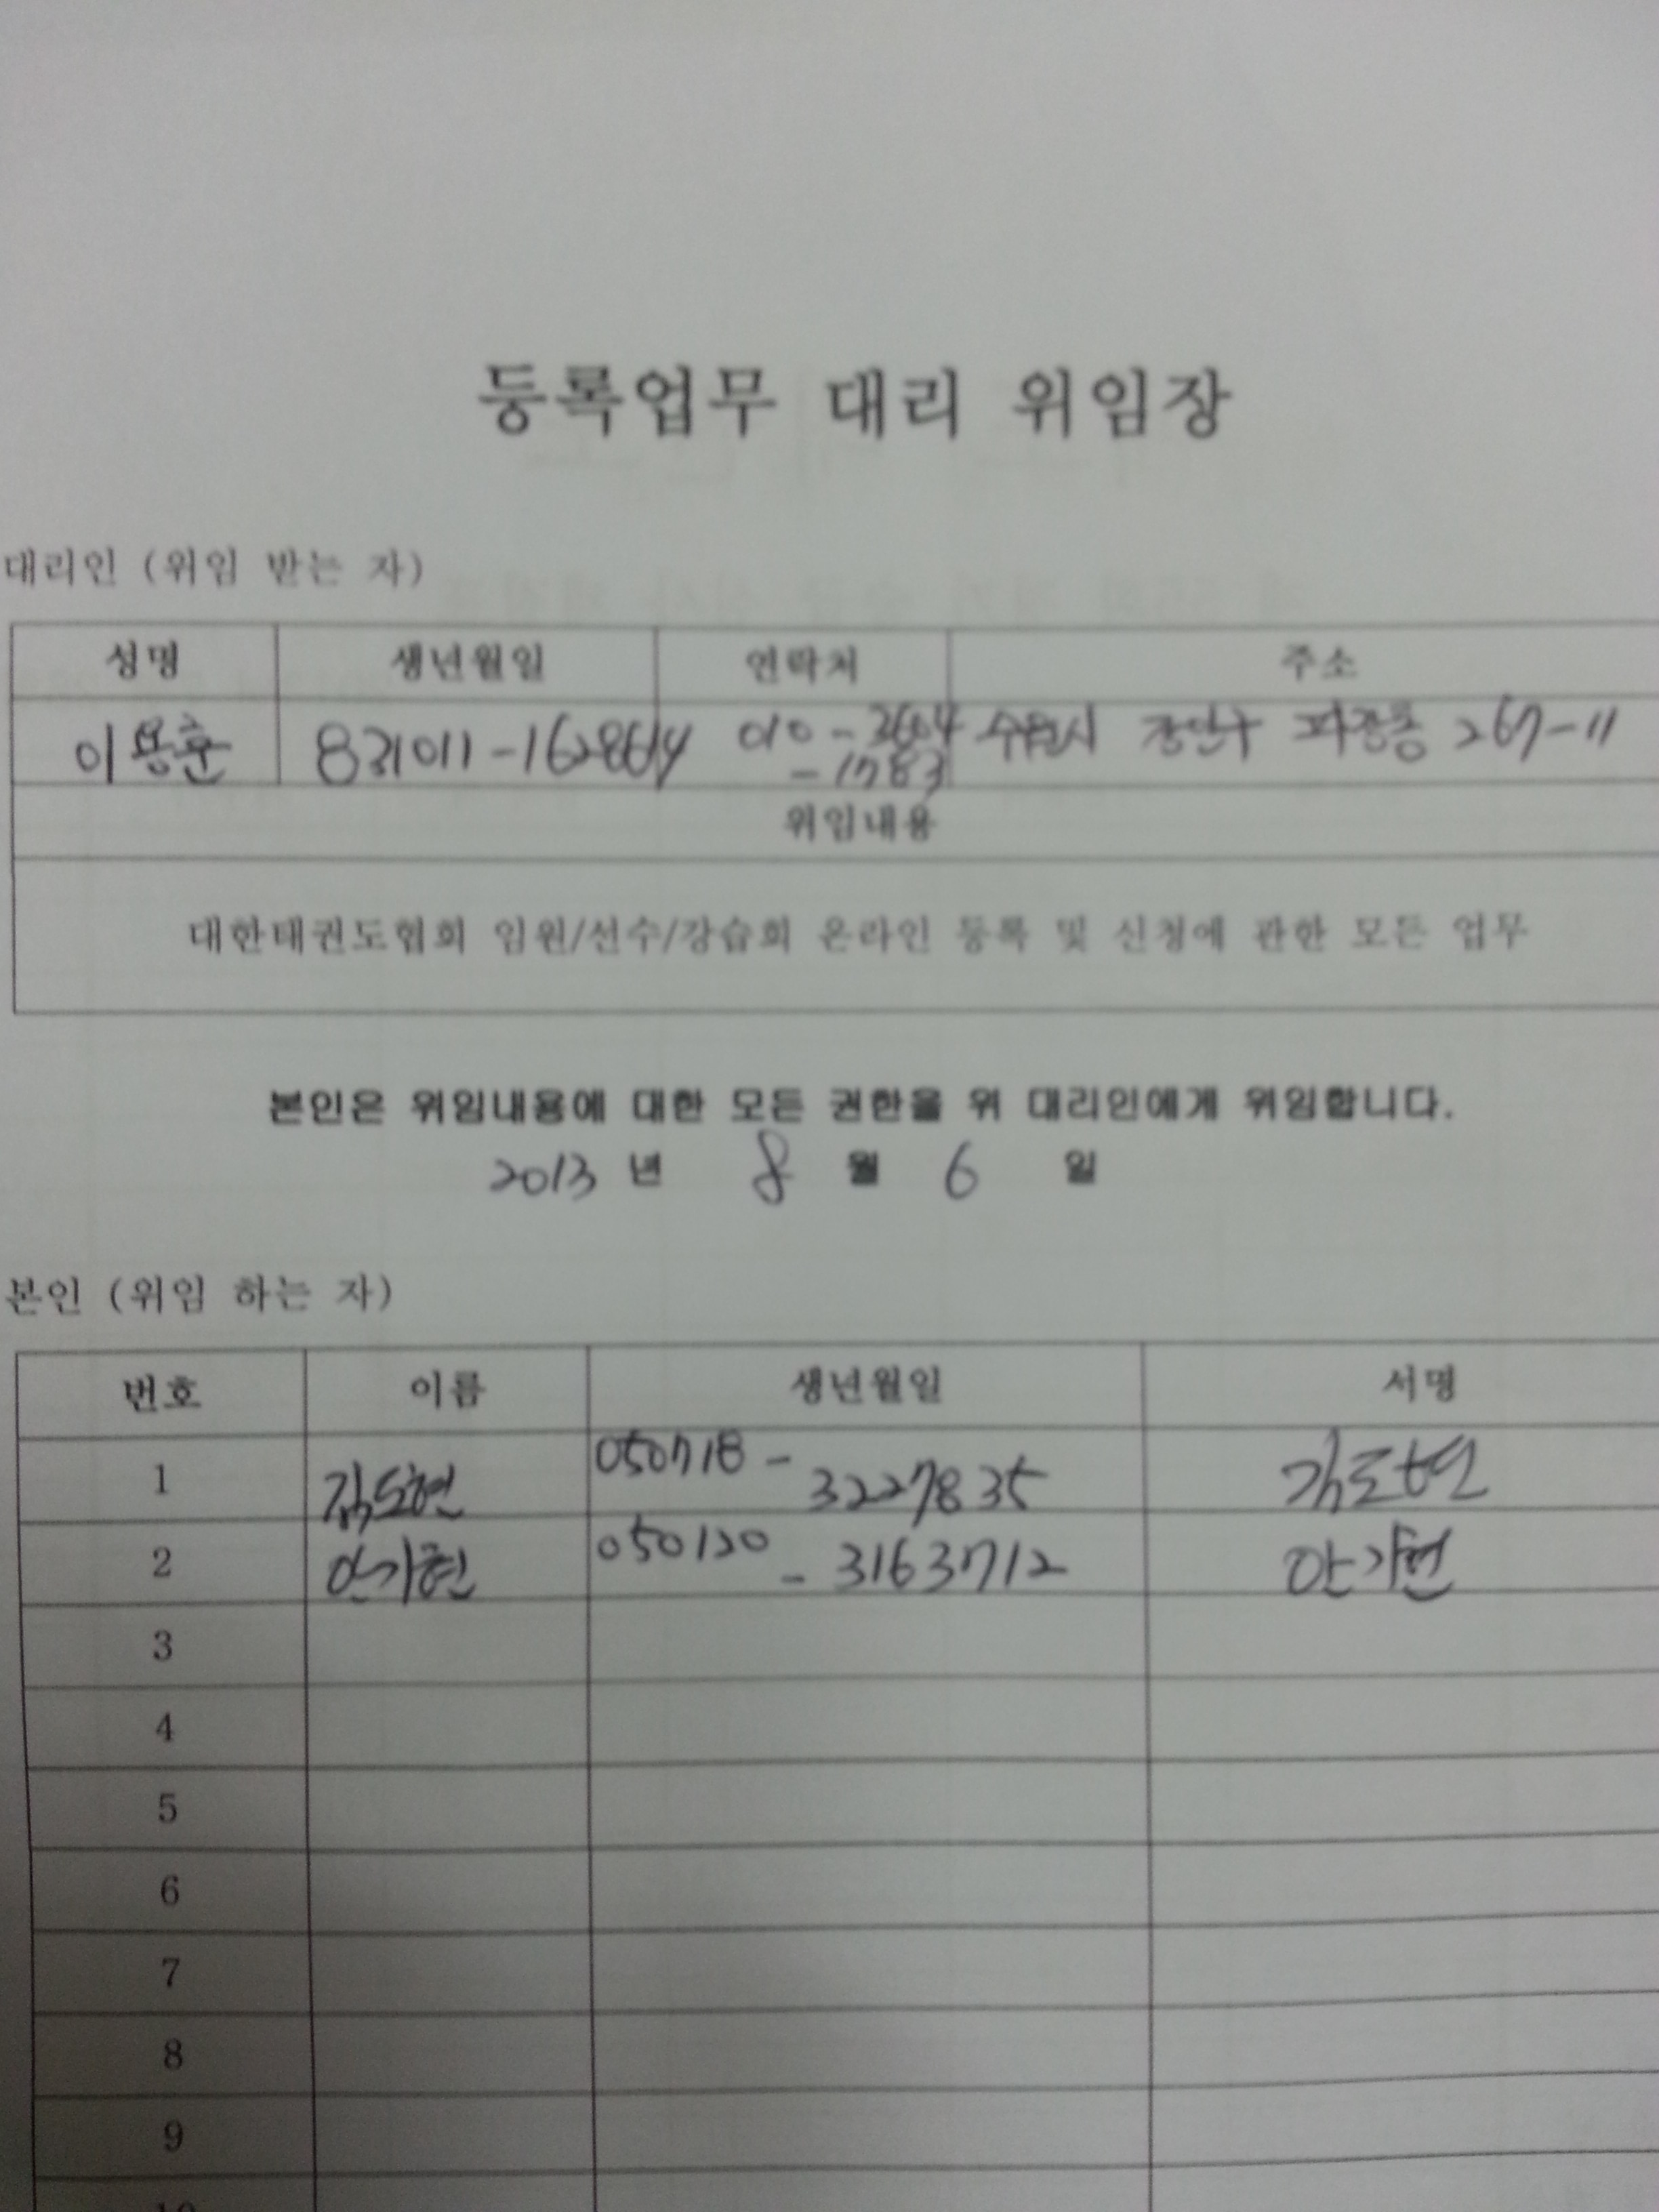 등록업무 대리 위임장
대리인 (위임 받는 자)
성명 생년월일 연락처 주소
이용훈 831011-1628614 010-3604 수원시 장안구 파장동 267-11
-1783
위임내용
대한태권도협회 임원/선수/강습회 온라인 등록 및 신청에 관한 모든 업무
본인은 위임내용에 대한 모든 권한을 위 대리인에게 위임합니다.
2013 년 8 월 6 일
본인 (위임 하는 자)
번호 이름 생년월일 서명
1 김도현 050718-3227835 김도현
2 안기현 050120-3163712 안기현
3
4
5
6
7
8
9
10